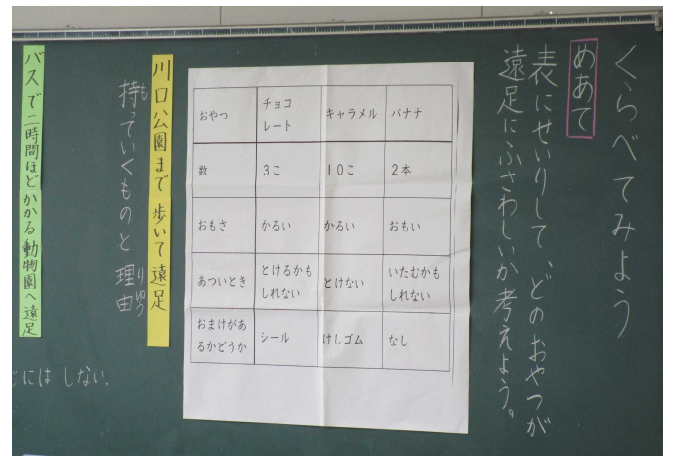 くらべてみよう
めあて
表にせいりして、どのおやつが
遠足にふさわしいか考えよう。
おやつ
チョコ
レート
キャラメル
バナナ
数
3こ
10こ
2本
おもさ
かるい
かるい
おもい
あついとき
とけるかも
しれない
とけない
いたむかも
しれない
おまけがあ
るかどうか
シール
けしゴム
なし
川口公園まで歩いて遠足
持っていくものと理由
も
りゆう
バスで二時間ほどかかる動物園へ遠足
にはしない。